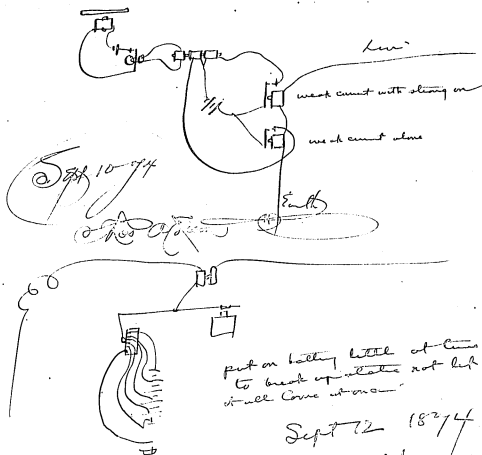 Line
weak current with strong on
weak current alone
Sept 10 74
Earth
put on battery little at time
to break up static not left
it all come at once
Sept 12 1874